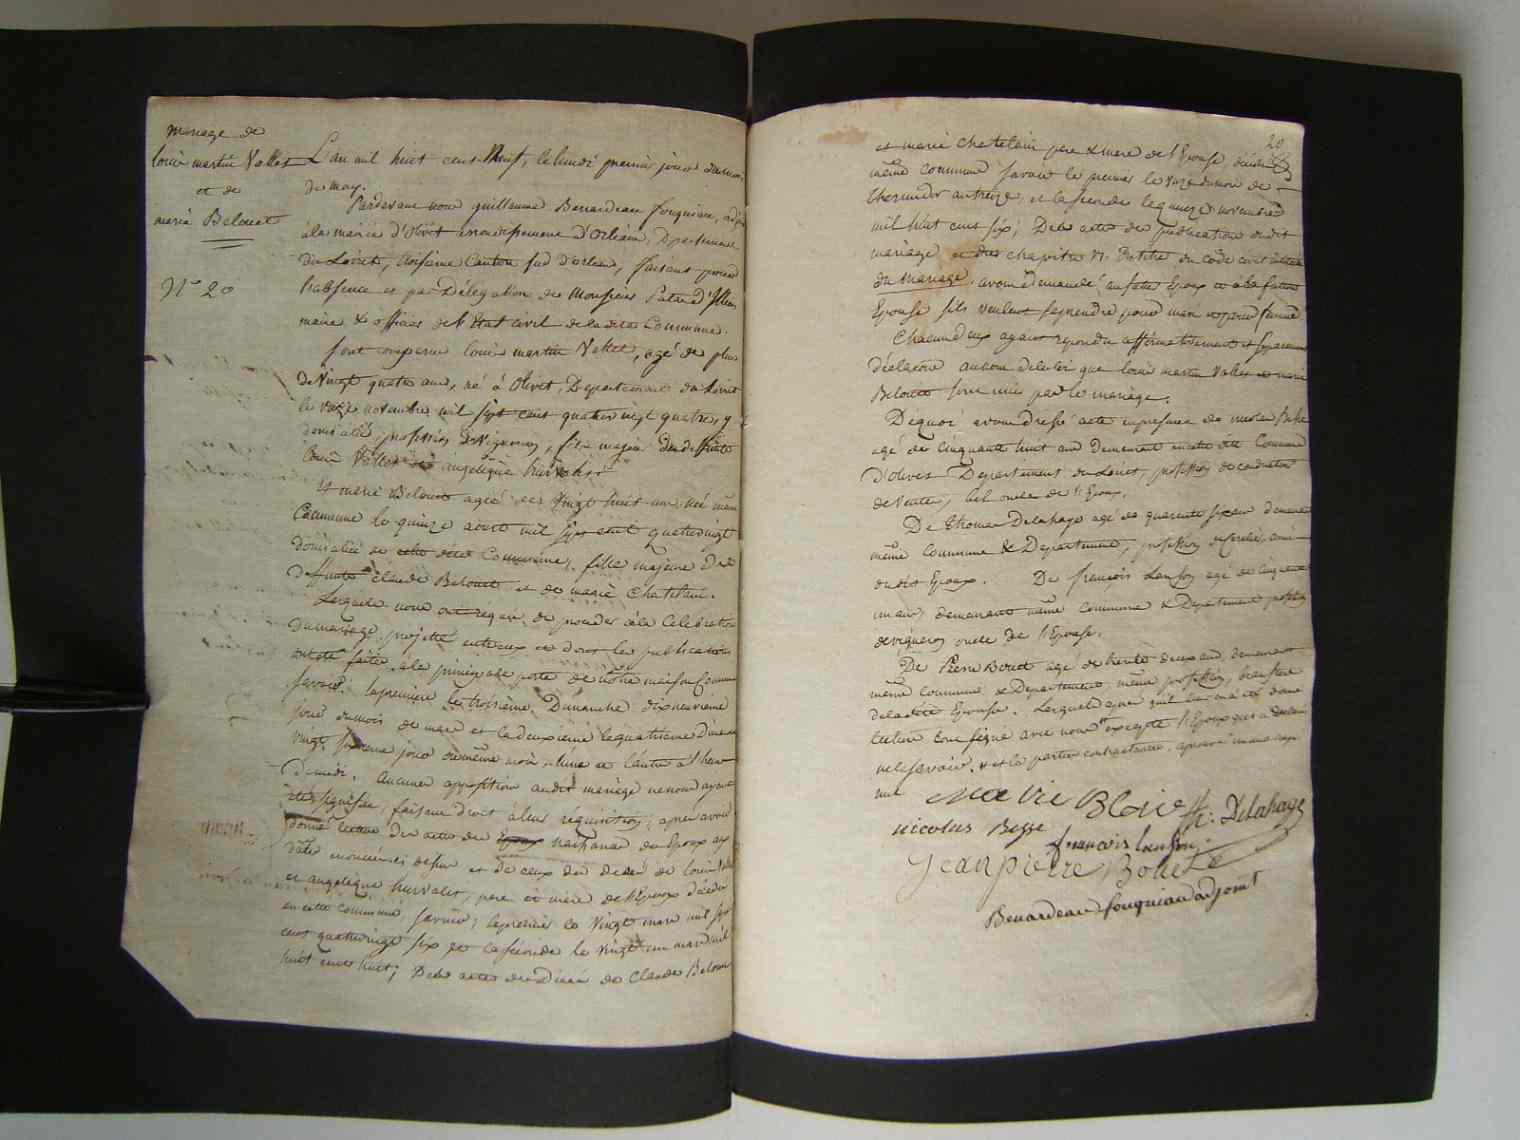 mariage de
Louis martin Vallet
et de
marie Belouet
N° 20
L'an mil huit cent Neuf, le lundi premier jour du mois
de may.
Pardevant nous guillaume Benardeau fouqueau, adjt
à la mairie d'Olivet arrondissement d'Orléans, Département
du Loiret, Canton sud d'orleans, faisant pour
l'absence et par Délégation de Monsieur
maire & officier de l'Etat civil de la dite Commune.
sont comparu louis martin Vallet, agé de plus
de Vingt quatre ans, né à Olivet, Departement du Loiret
le onze novembre mil sept cent quatre vingt quatre, y
domicilié, profession de Vigneron, fils majeur des deffunts
Louis Vallet et angelique hurvalet
Et marie Belouet agée de Vingt huit ans née même
Commune le quinze aout mil sept cent quatrevingt
domiciliée en cette dite Commune, fille majeure de
deffunts claude Belouet et de marie Chatelain.
Lesquels nous ont requis de proceder à la Celebration
du mariage projetté entre eux et dont les publications
ont été faites à la principale porte de notre maison Commune
savoir: la premiere le troisieme Dimanche dix neuvieme
jour du mois de mars et la deuxieme le quatrieme Dimanche
vingt sixieme jour du même mois, l'une et l'autre à l'heure
De midi. Aucune opposition audit mariage ne nous ayant
été signifiée, faisant droit à leur réquisition; après avoir
donné lecture des actes de naissance des Epoux aux
dates énoncées dessus et de ceux de décès de Louis Vallet
et angelique hurvalet, pere et mère de l'Epoux décédés
en cette commune, savoir; le premier le Vingt mars mil sept
cent quatrevingt six et la seconde le vingt un mars mil
huit cent huit; De les actes de Décès de Claude Belouet
20
et marie Chatelain pere & mere de l'Epouse, décédés
même commune savoir le premier le onze du mois de
thermidor an treize, et la seconde le quinze novembre
mil huit cent six; De les actes de publication dudit
mariage et du chapitre VI. Du titre du Code civil intitulé
du Mariage, avons demandé au futur Epoux et à la future
Epouse s'ils veulent se prendre pour mari et pour femme
Chacun d'eux ayant répondu affirmativement et séparement
déclarons au nom de la loi que louis martin Vallet et marie
Belouet sont unis par le mariage.
De quoi avons dressé acte en presence de nicolas Besse
agé de cinquante huit ans demeurant en cette dite Commune
D'olivet Departement du Loiret, profession de conducteur
de Ventes, bel oncle de l'Epoux.
De thomas Delahaye agé de quarente six ans demeurant
même Commune & Departement, profession de , ami
dudit Epoux. De françois Lanson agé de cinquante
un ans, demeurant même commune & Departement profession
de vigneron oncle de l'Epouse.
De Pierre Bouet agé de trente deux ans, demeurant
même commune & Departement, même profession, beaufrere
de la dite Epouse. Lesquels après qu'il leur en a été donné
lecture l'ont signé avec nous excepté l'Epoux qui a declaré
ne le savoir. & et les parties contractantes. approuvé
nul
Marie Bloue
th. Delahaye
nicolas Besse
françois lanson
Jean pierre Bouet
Benardeau fouqueau adjoint